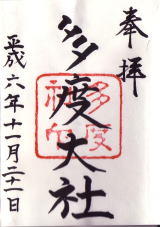 奉拝
多度大社
平成六年十一月二十一日